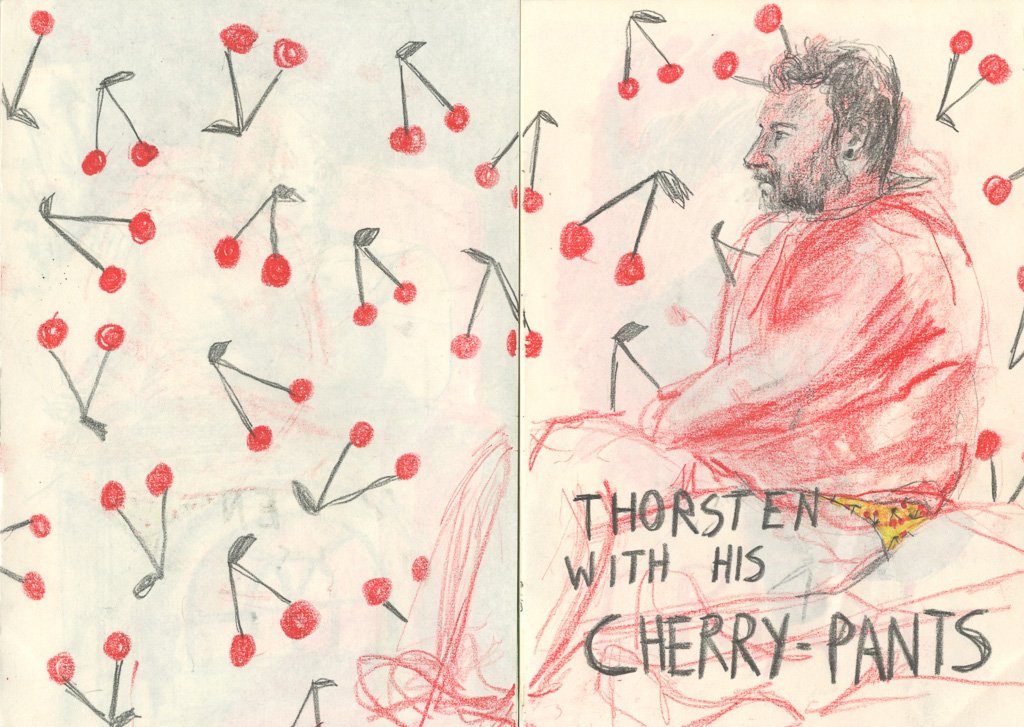 THORSTEN
WITH HIS
CHERRY-PANTS